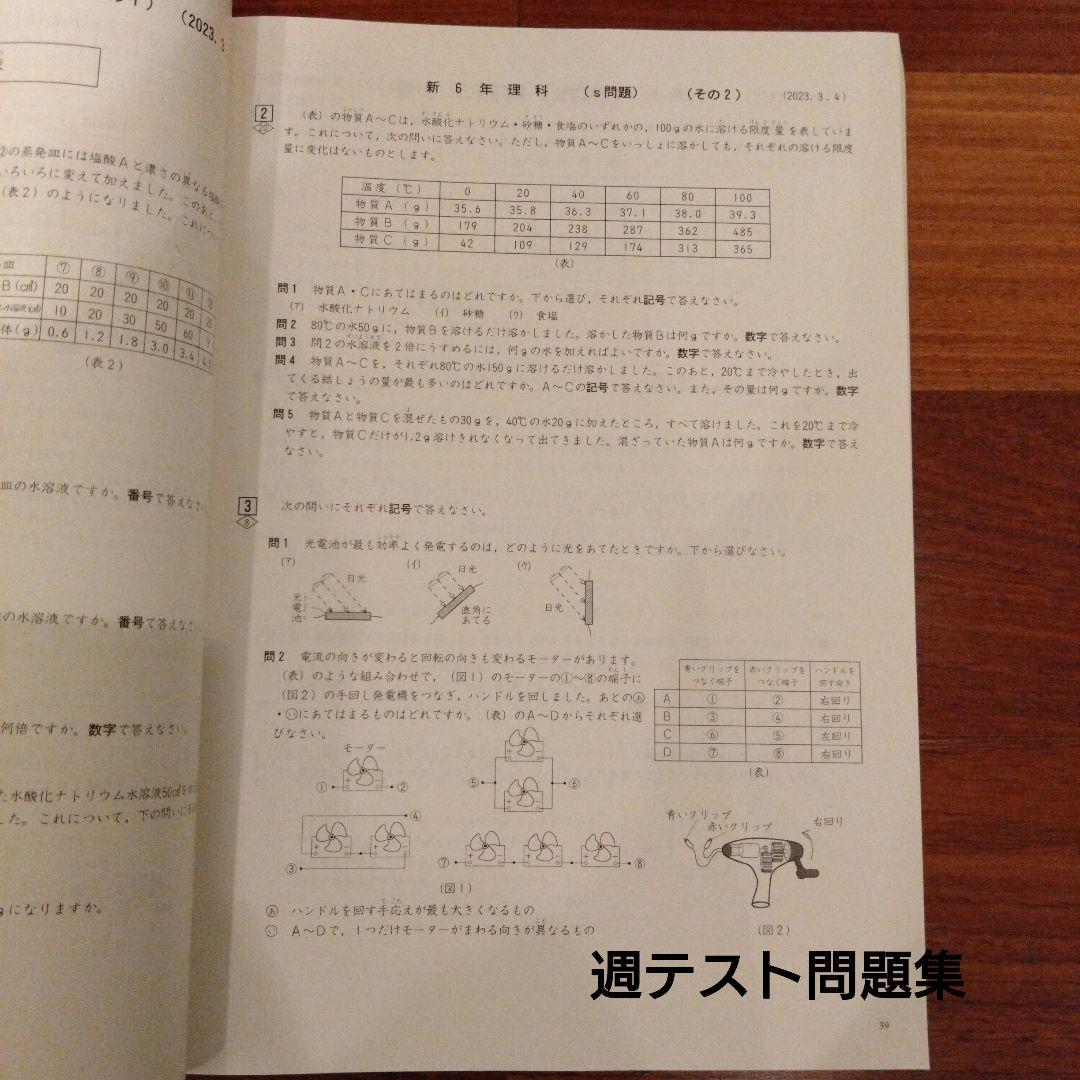 (2023.3
②の蒸発皿には塩酸Aと濃さの異なる塩酸
いろいろに変えて加えました。このあと、
(表2)のようになりました。これについ
皿 ⑦ ⑧ ⑨ ⑩ ⑪ ⑫
B(cm³) 20 20 20 20 20 20
水溶液(cm³) 10 20 30 50 60
体(g) 0.6 1.2 1.8 3.0 3.4
(表2)
皿の水溶液ですか。番号で答えなさい。
の水溶液ですか。番号で答えなさい。
何倍ですか。数字で答えなさい。
た水酸化ナトリウム水溶液50cm³を
した。これについて、下の問いに
gになりますか。
新6年理科 (s問題) (その2) (2023.3.4)
2
20
(表)の物質A~Cは,水酸化ナトリウム・砂糖・食塩のいずれかの,100gの水に溶ける限度量を表していま
す。これについて,次の問いに答えなさい。ただし,物質A~Cをいっしょに溶かしても,それぞれの溶ける限度
量に変化はないものとします。
温度(℃) 0 20 40 60 80 100
物質A(g) 35.6 35.8 36.3 37.1 38.0 39.3
物質B(g) 179 204 238 287 362 485
物質C(g) 42 109 129 174 313 365
(表)
問1 物質A・Cにあてはまるのはどれですか。下から選び,それぞれ記号で答えなさい。
(ア) 水酸化ナトリウム (イ) 砂糖 (ウ) 食塩
問2 80℃の水50gに,物質Bを溶けるだけ溶かしました。溶かした物質Bは何gですか。数字で答えなさい。
問3 問2の水溶液を2倍にうすめるには,何gの水を加えればよいですか。数字で答えなさい。
問4 物質A~Cを,それぞれ80℃の水150gに溶けるだけ溶かしました。このあと,20℃まで冷やしたとき,出
てくる結しょうの量が最も多いのはどれですか。A~Cの記号で答えなさい。また,その量は何gですか。数字
で答えなさい。
問5 物質Aと物質Cを混ぜたもの30gを,40℃の水20gに加えたところ,すべて溶けました。これを20℃まで冷
やすと,物質Cだけが1.2g溶けきれなくなって出てきました。混ざっていた物質Aは何gですか。数字で答え
なさい。
3
8
次の問いにそれぞれ記号で答えなさい。
問1 光電池が最も効率よく発電するのは,どのように光をあてたときですか。下から選びなさい。
(ア) 日光 光電池
(イ) 日光 直角にあてる
(ウ) 日光
問2 電流の向きが変わると回転の向きも変わるモーターがあります。
(表)のような組み合わせで,(図1)のモーターの①~⑧の端子に
(図2)の手回し発電機をつなぎ,ハンドルを回しました。あとのあ
・いにあてはまるものはどれですか。(表)のA~Dからそれぞれ選
びなさい。
青いクリップをつなぐ端子 赤いクリップをつなぐ端子 ハンドルを回す向き
A ① ② 右回り
B ③ ④ 右回り
C ⑥ ⑤ 左回り
D ⑦ ⑧ 右回り
(表)
モーター
① ②
⑤ ⑥
④
③
⑦ ⑧
(図1)
青いクリップ
赤いクリップ
右回り
(図2)
あ ハンドルを回す手応えが最も大きくなるもの
い A~Dで,1つだけモーターがまわる向きが異なるもの
週テスト問題集
39